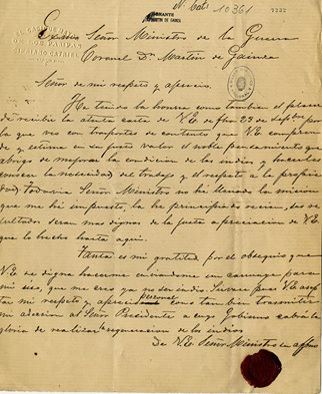 Nº Catº 10361
7232
DONANTE
MARTIN DE GAINZA
EL CACIQUE
DE LAS PAMPAS
CIPRIANO CATRIEL
Exmo Señor Ministro de la Guerra
Coronel Dn. Martin de Gainza
Señor de mi respeto y aprecio.
He tenido la honra como tambien el placer
de recibir la atenta carta de V.E. de fha 23 de Sepbre por
la que veo con trasportes de contento que V.E. compren
de y estima en su justo valor el noble pensamiento que
abrigo de mejorar la condicion de los indios y hacerles
conocer la necesidad del trabajo y el respeto a la propie
dad. Todavia Señor Ministro no he llenado la mision
que me hé impuesto, la hé principiado recien, sus re
sultados seran mas dignos a la justa apreciacion de V.E.
que lo hecho hasta aqui.
Tanta es mi gratitud por el obsequio que
V.E. se digna hacerme enviandome un carruage para
mi uso, que me creo ya no ser indio. Sirvase pues V.E. acep
tar mi respeto y aprecio personal como tambien trasmitir
mi adhesion al Señor Presidente a cuyo Gobierno cabrá la
gloria de realizar la regeneracion de los indios
De V.E. Señor Ministro su affmo